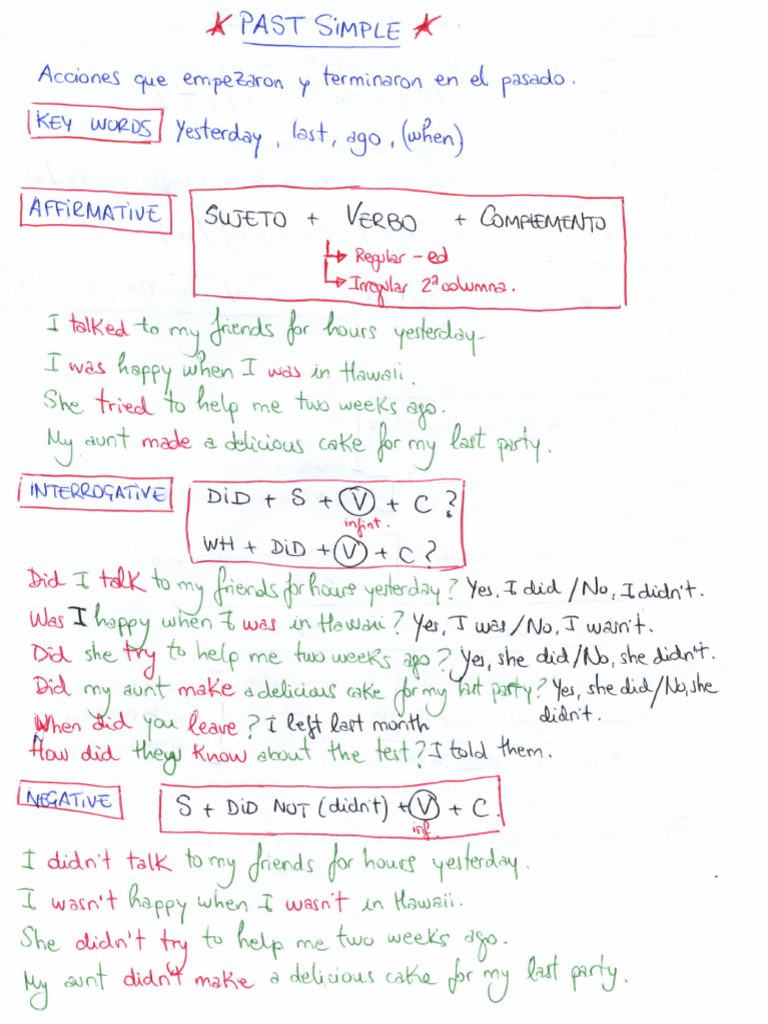 PAST SIMPLE
Acciones que empezaron y terminaron en el pasado.
KEY WORDS Yesterday, last, ago, (when)
AFFIRMATIVE SUJETO + VERBO + COMPLEMENTO
Regular -ed
Irregular 2ª columna.
I talked to my friends for hours yesterday.
I was happy when I was in Hawaii.
She tried to help me two weeks ago.
My aunt made a delicious cake for my last party.
INTERROGATIVE DID + S + V + C ?
infint.
WH + DID + V + C ?
Did I talk to my friends for hours yesterday? Yes, I did / No, I didn't.
Was I happy when I was in Hawaii? Yes, I was / No, I wasn't.
Did she try to help me two weeks ago? Yes, she did / No, she didn't.
Did my aunt make a delicious cake for my last party? Yes, she did / No, she
didn't.
When did you leave? I left last month
How did they know about the test? I told them.
NEGATIVE S + DID NOT (didn't) + V + C.
inf.
I didn't talk to my friends for hours yesterday.
I wasn't happy when I wasn't in Hawaii.
She didn't try to help me two weeks ago.
My aunt didn't make a delicious cake for my last party.